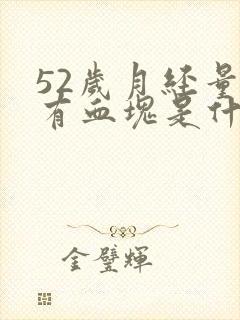 52歲月经量
有血塊是什
金璧輝